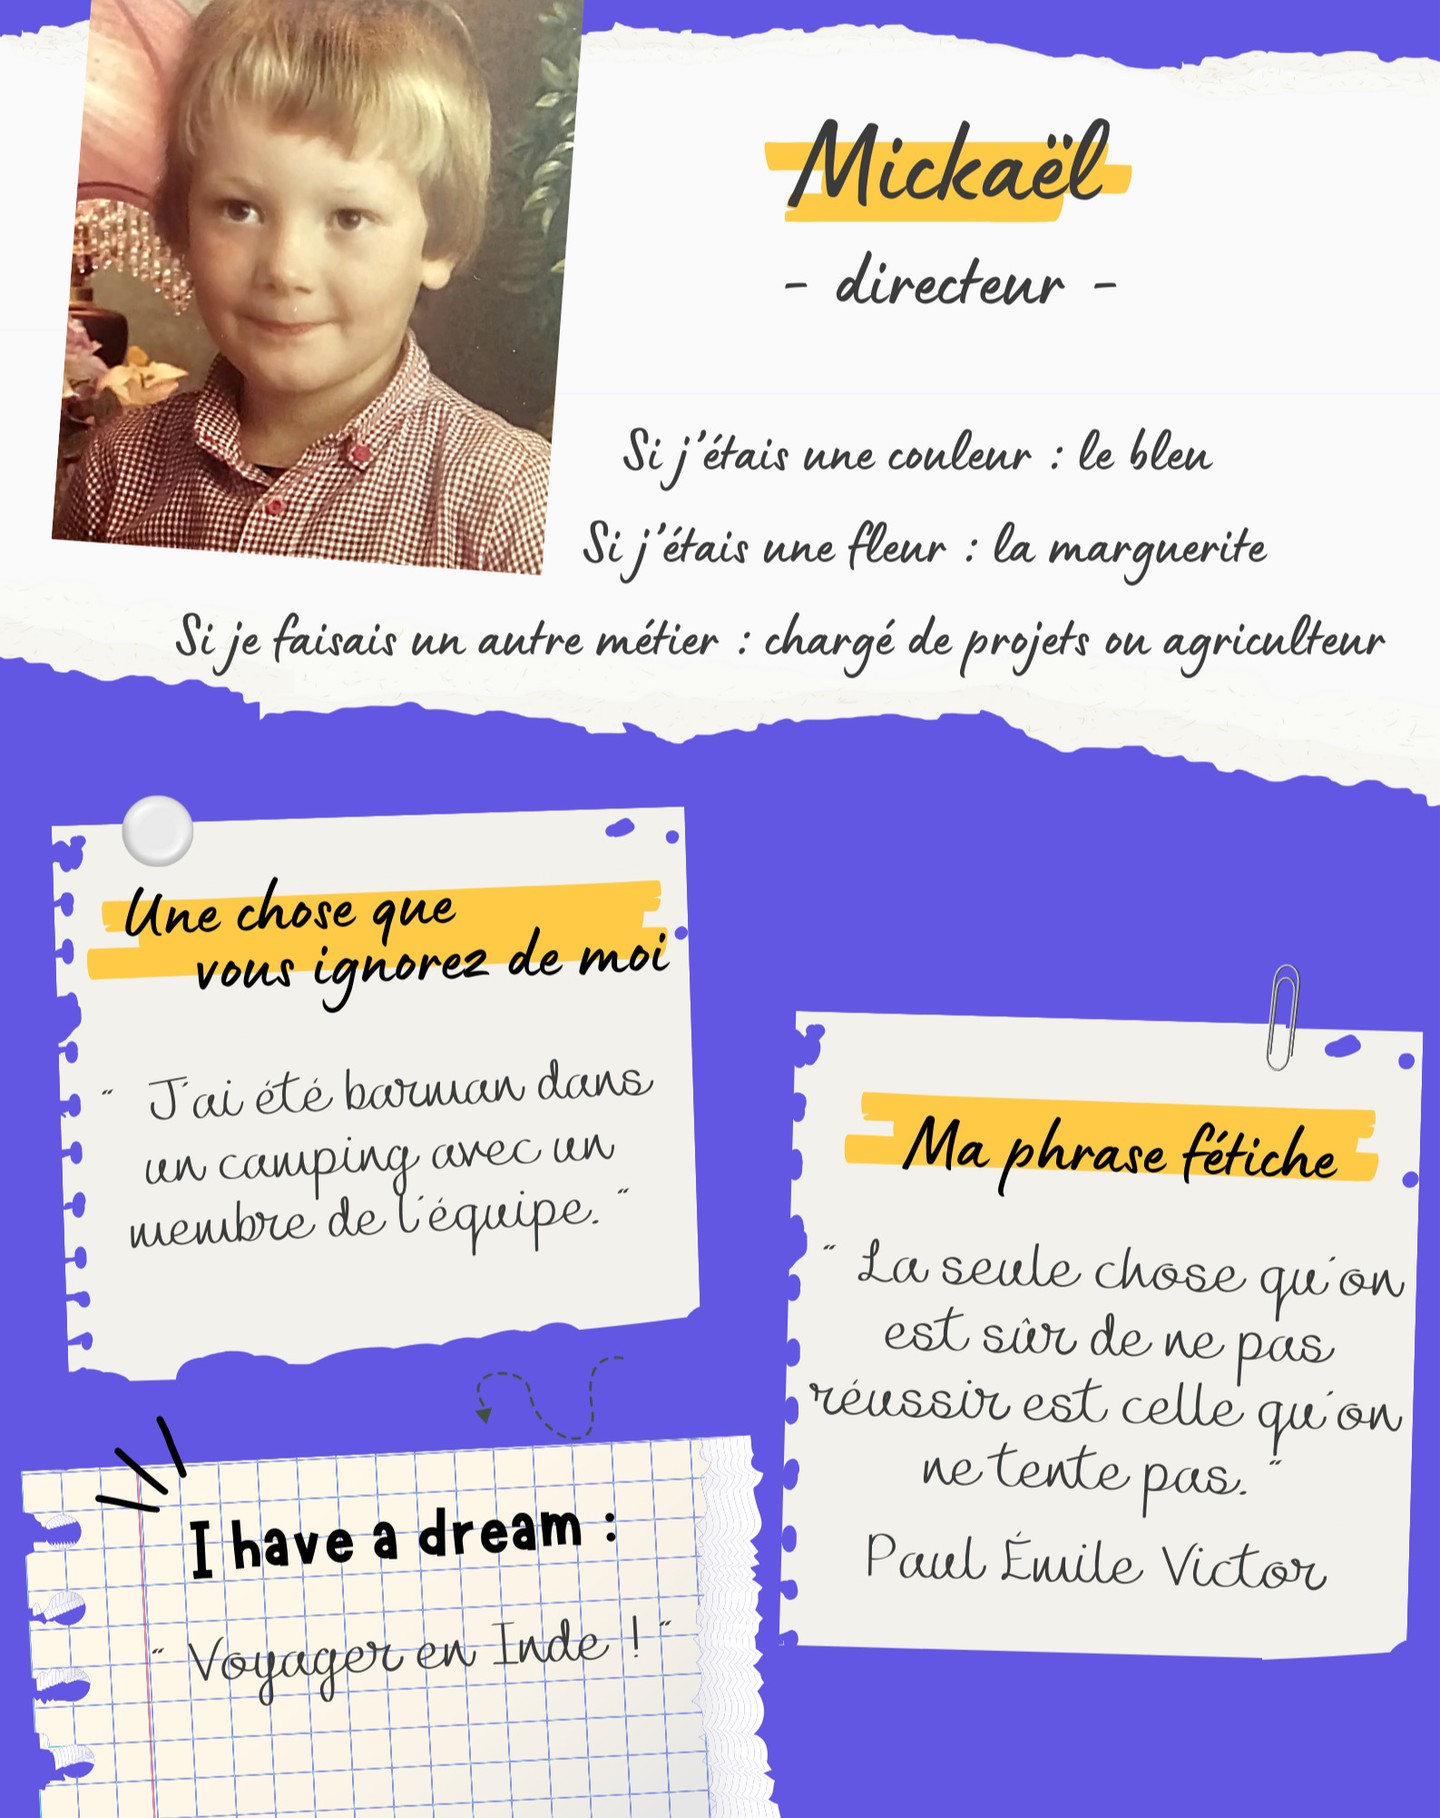 Mickaël
- directeur -
Si j'étais une couleur : le bleu
Si j'étais une fleur : la marguerite
Si je faisais un autre métier : chargé de projets ou agriculteur
Une chose que
vous ignorez de moi
" J'ai été barman dans
un camping avec un
membre de l'équipe. "
Ma phrase fétiche
" La seule chose qu'on
est sûr de ne pas
réussir est celle qu'on
ne tente pas. "
Paul Émile Victor
I have a dream :
" Voyager en Inde ! "